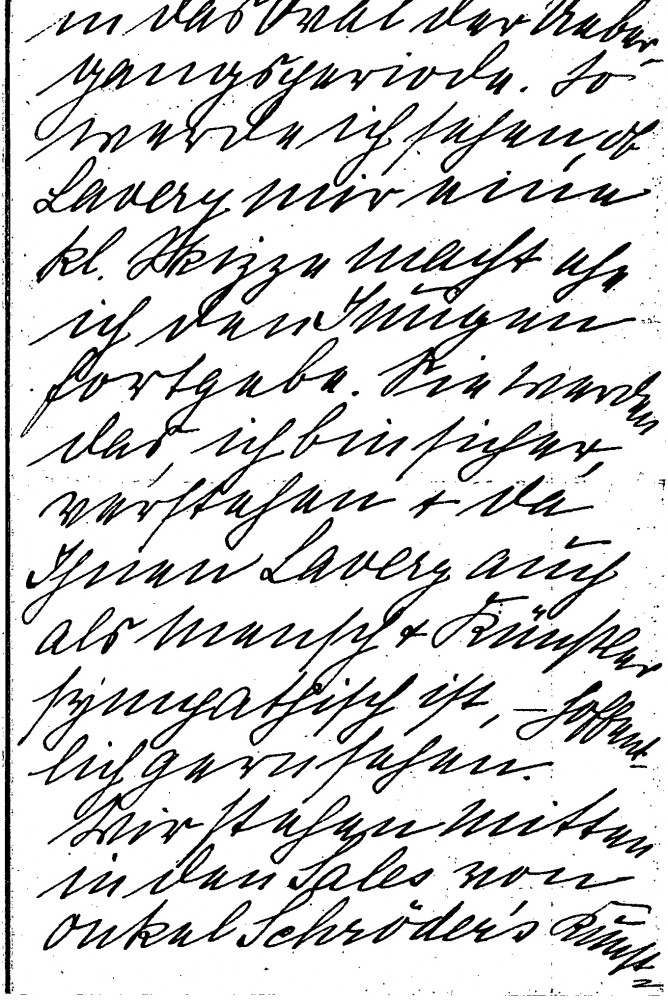 in das Oval der Ueber-
gangsperiode. So
werde ich sehen, ob
Lavery mir eine
kl. Skizze macht ehe
ich den Jungen
fortgebe. Sie werden
das, ich bin sicher,
verstehen + da
Ihnen Lavery auch
als Mensch + Künstler
sympathisch ist, – hoffent-
lich gern sehen.
Wir stehen mitten
in den Sales von
Onkel Schröder's Kunst=